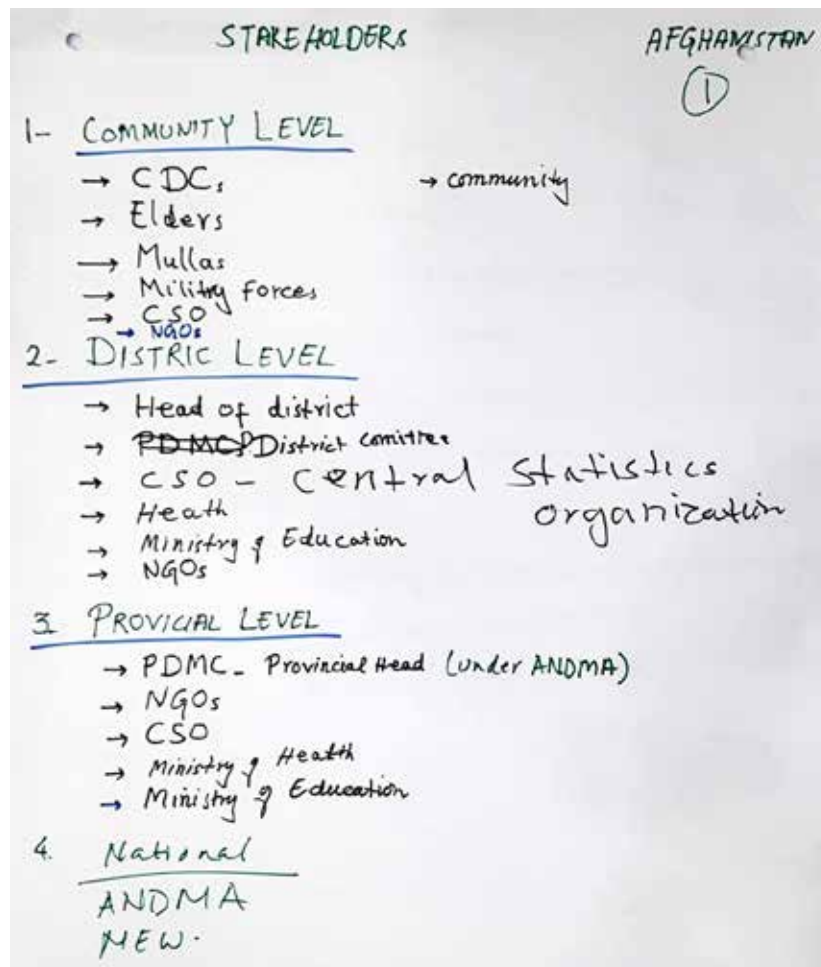 STAKEHOLDERS AFGHANISTAN
1
1- COMMUNITY LEVEL
→ CDCs → community
→ Elders
→ Mullas
→ Militry Forces
→ CSO
→ NGOs
2- DISTRIC LEVEL
→ Head of district
→ PDMC District comittee
→ CSO - Central Statistics
organization
→ Heath
→ Ministry of Education
→ NGOs
3. PROVICIAL LEVEL
→ PDMC - Provincial Head (under ANDMA)
→ NGOs
→ CSO
→ Ministry of Health
→ Ministry of Education
4. National
ANDMA
MEW.